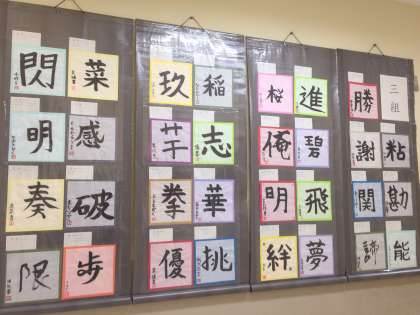 三組
粘
勘
能
勝
謝
関
諦
進
碧
飛
夢
桜
俺
明
絆
稲
志
華
挑
玖
拳
優
菜
感
破
歩
閃
明
奏
限